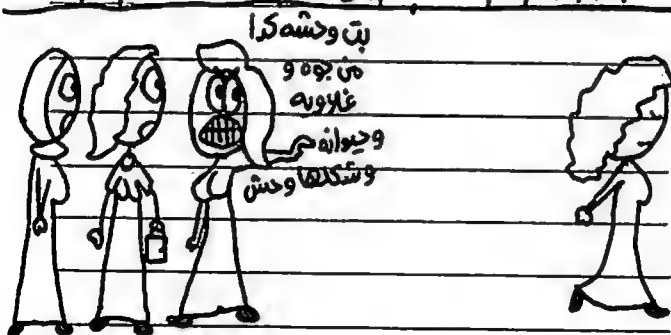 بت وحشه كدا
من جوه و
غلاويه
وحيوانه
وشكلها وحش